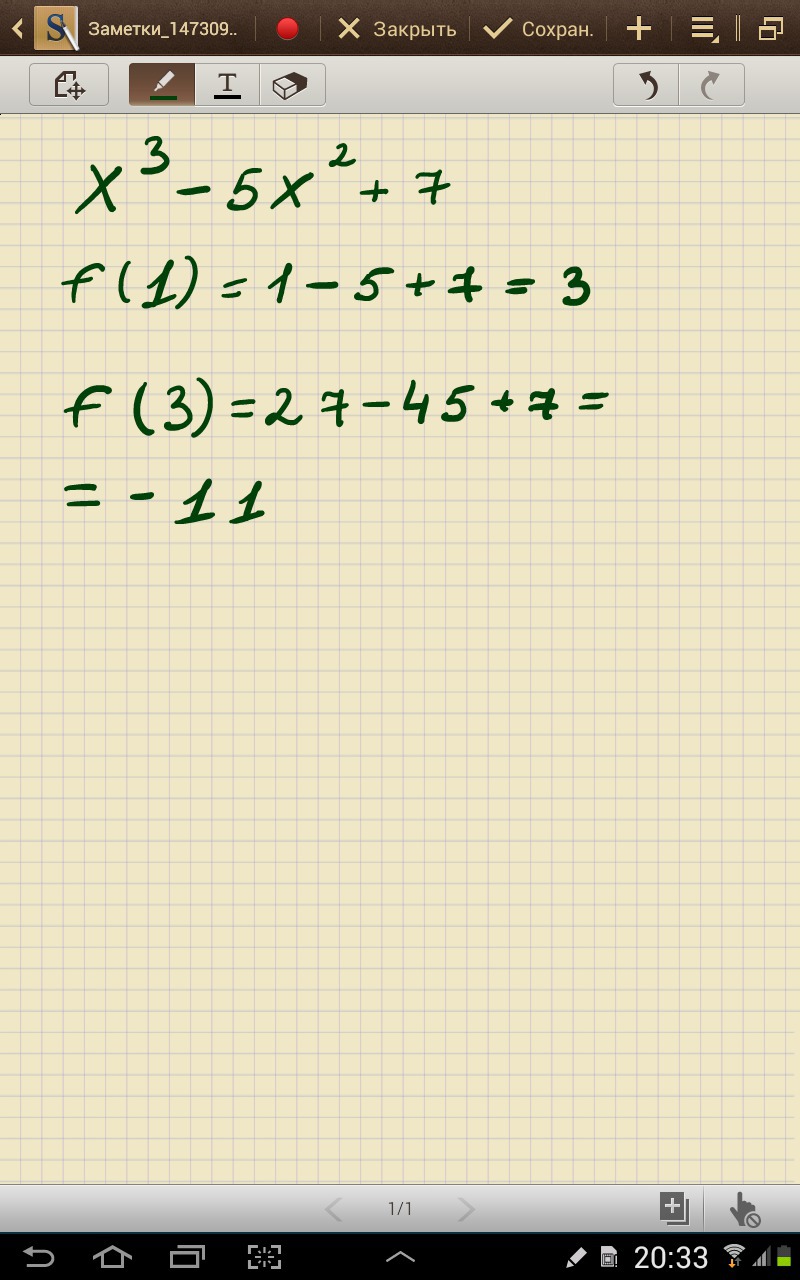 Заметки_147309.. Закрыть Сохран.
T
x³ - 5x² + 7
f(1) = 1 - 5 + 7 = 3
f(3) = 27 - 45 + 7 =
= - 11
1/1
20:33